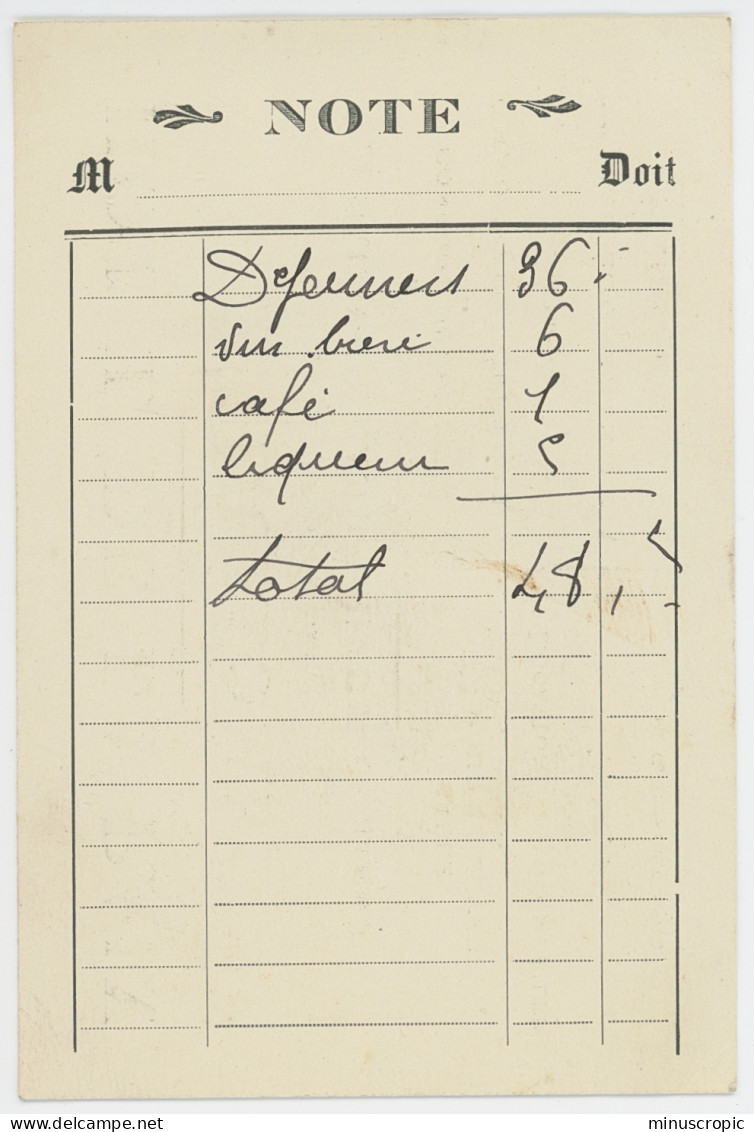 NOTE
M Doit
Déjeuners 36.-
vin bière 6
café 1
liqueur 5
total 48,-
www.delcampe.net minuscropic